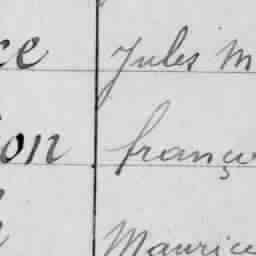 ce Jules M
ion franço
Maurice